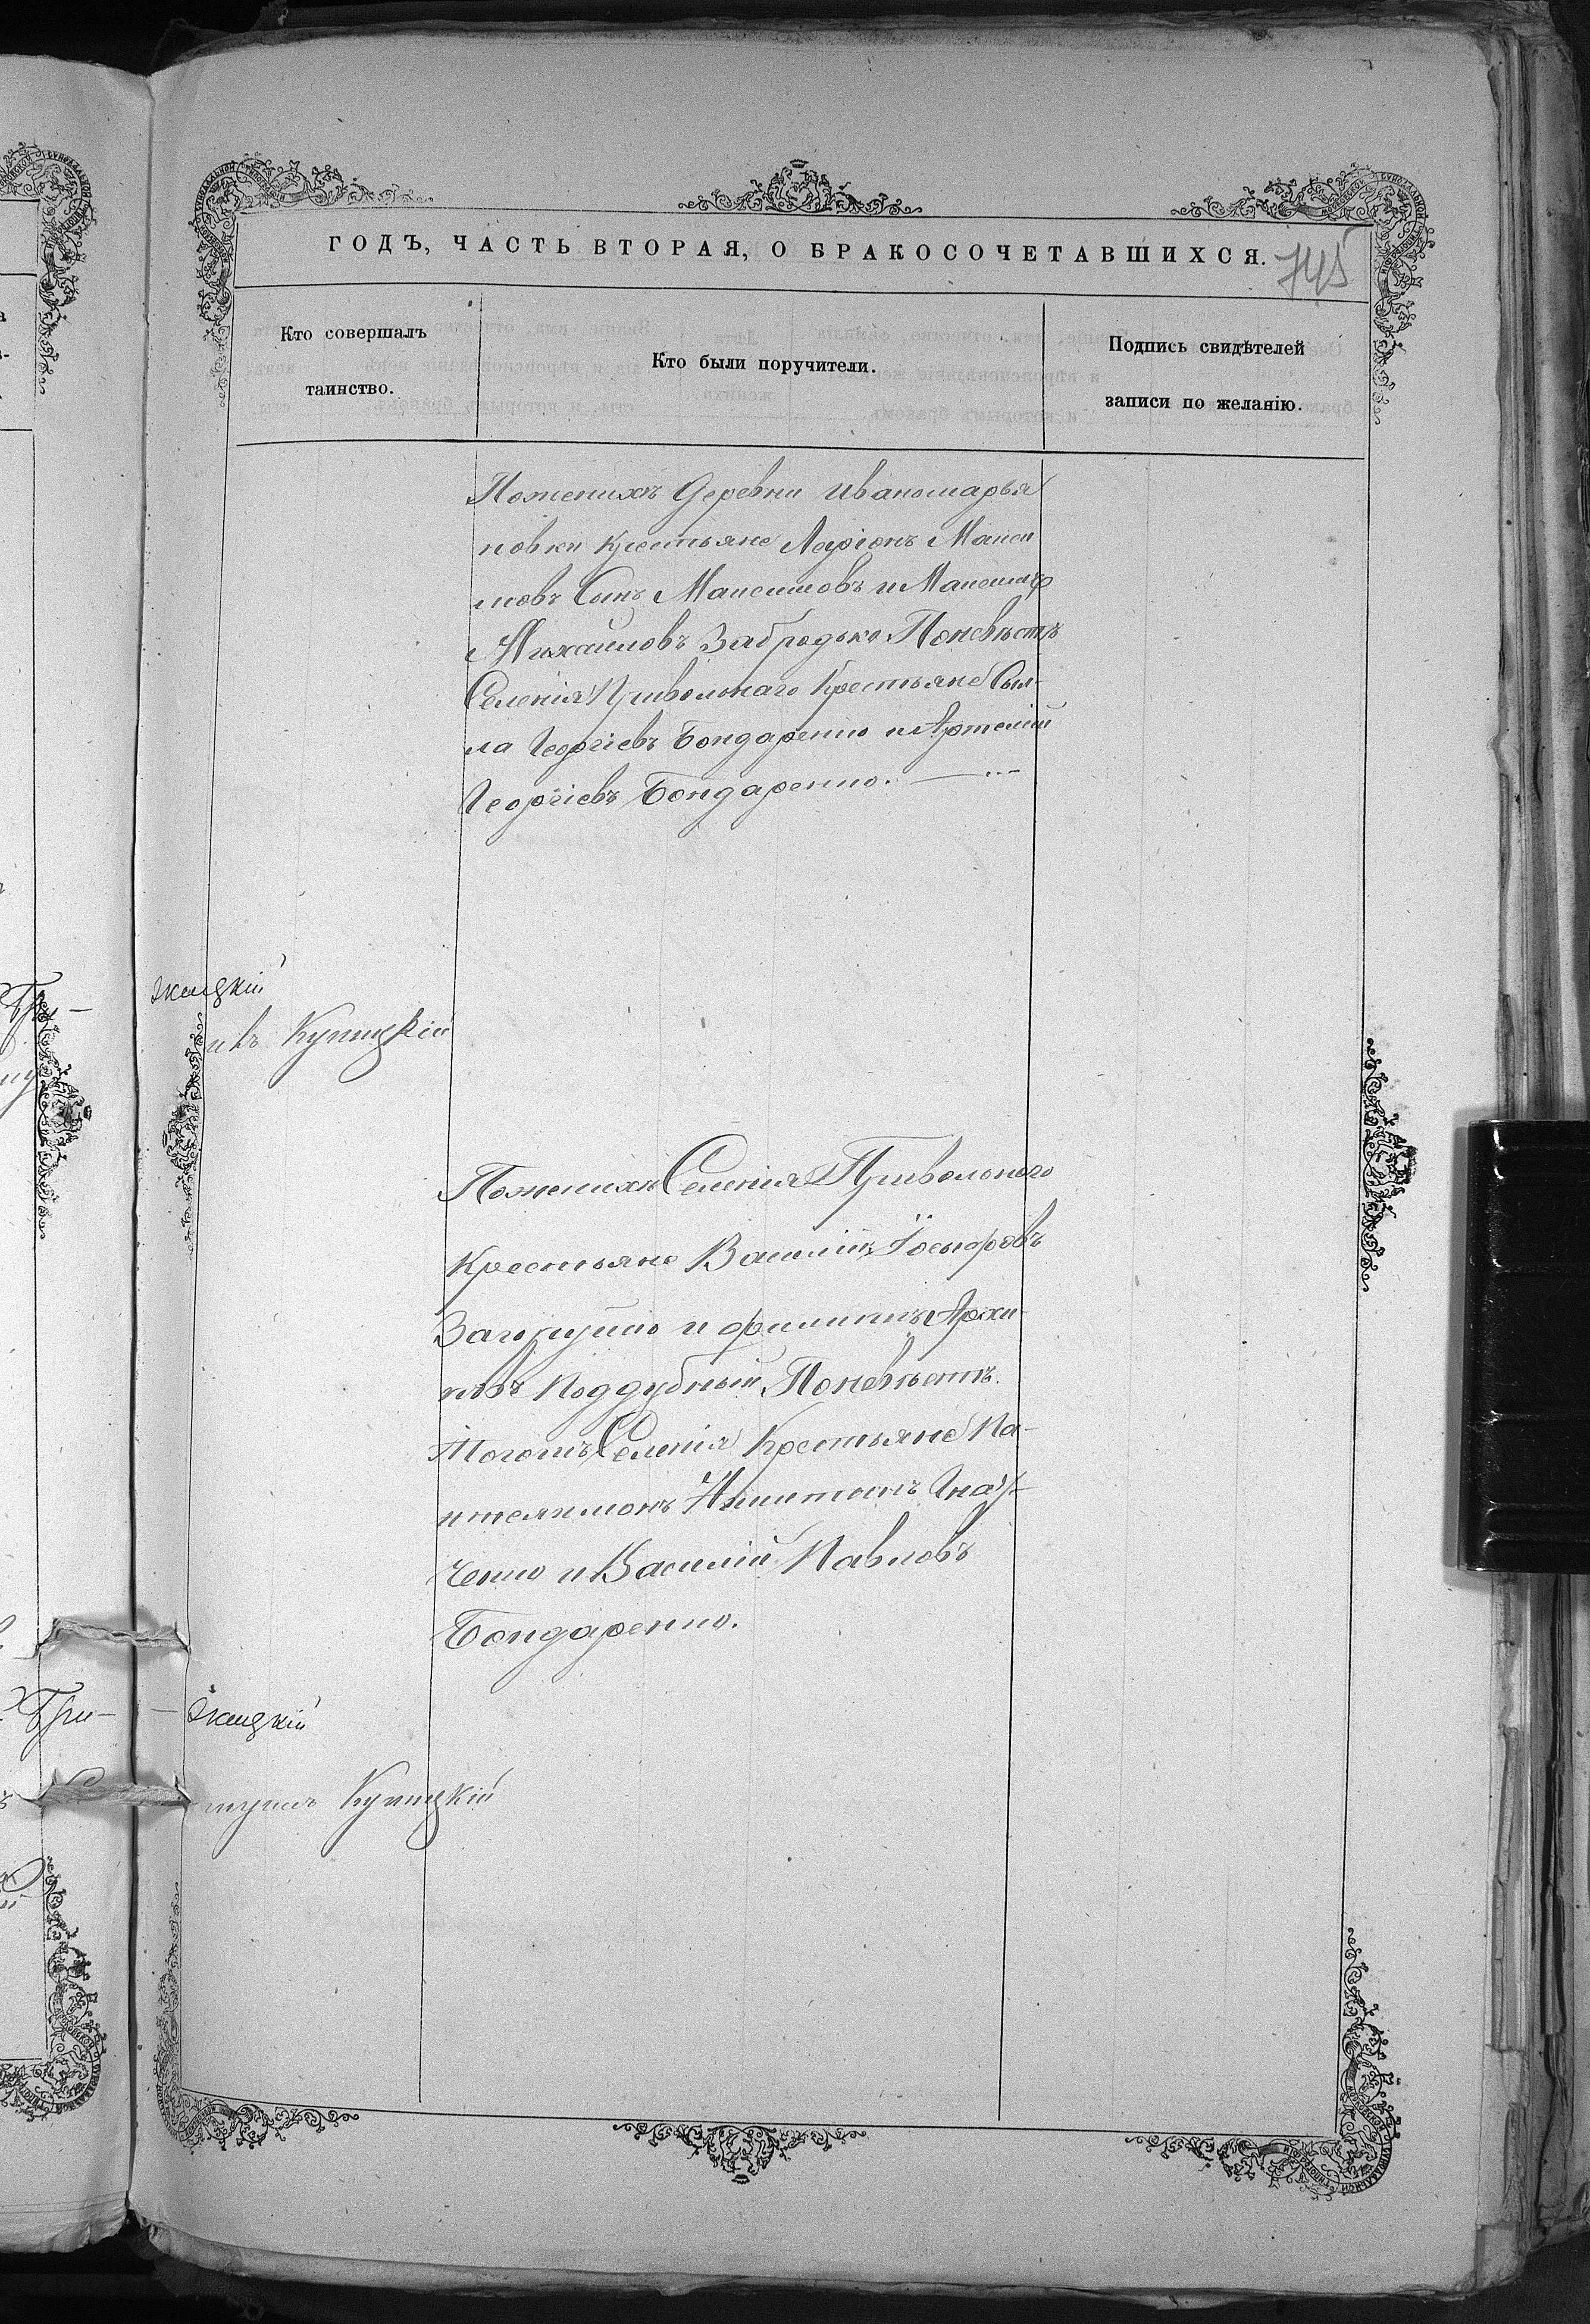 ГОДЪ, ЧАСТЬ ВТОРАЯ, О БРАКОСОЧЕТАВШИХСЯ.
745
Кто совершалъ
таинство.
Кто были поручители.
Подпись свидѣтелей
записи по желанію.
Поженихѣ деревни Иваномарья
новки крестьяне Ларіонъ Макси
мовъ Сынъ Максимовъ и Максимъ
Михаиловъ Забродько Поневѣстѣ
Селенія Привольнаго Крестьяне
ла Георгіевъ Бондаренко и Артемій
Георгіевъ Бондаренко.
жицкій
икъ Купицкій
Поженихѣ Селенія Привольного
Крестьяне Василій
и филиппъ Архи-
повъ Поддубный Поневѣстѣ.
Тогожъ Селенія Крестьяне Па-
нтелимонъ Никитинъ Гнат-
ченко и Василій Павловъ
Бондаренко.
жицкій
Купицкій